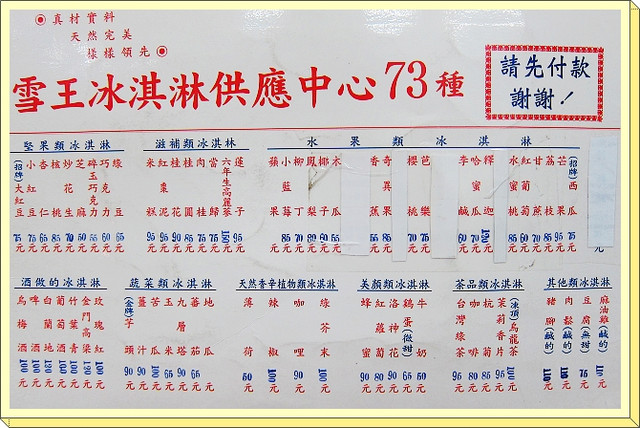 ◉真材實料
天然完美
樣樣領先◉
雪王冰淇淋供應中心73種
請先付款
謝謝！
堅果類冰淇淋
(招牌)大紅豆 75元
小紅豆 75元
杏仁 65元
核桃 85元
炒花生 70元
芝麻 50元
碎玉巧克力 55元
巧克力 60元
綠豆 65元
滋補類冰淇林
米糕 95元
紅棗泥 95元
桂花 90元
桂圓 90元
肉桂 90元
當歸 95元
六年生高麗蔘 150元
蓮子 90元
水果類冰淇淋
蘋果
小藍莓 85元
柳丁 70元
鳳梨 80元
椰子 60元
木瓜 55元
香蕉
奇異果
櫻桃 70元
芭樂 75元
李鹹 60元
哈蜜瓜 70元
釋迦 120元
水蜜桃 85元
紅葡萄 80元
甘蔗 60元
荔枝 95元
芒果 75元
(招牌)西瓜
元
酒做的冰淇淋
烏梅酒 100元
啤酒 100元
白蘭地 100元
葡萄酒 100元
竹葉青 100元
金門高梁 120元
玫瑰紅 100元
蔬菜類冰淇淋
(金牌)芋頭 90元
薑汁 90元
苦瓜 100元
玉米 65元
九層塔 65元
蕃茄 90元
地瓜 65元
天然香辛植物類冰淇淋
薄荷 50元
辣椒 100元
咖哩 90元
綠芥末 100元
美顏類冰淇淋
蜂蜜 90元
紅蘿蔔 80元
洛神花 90元
鷄蛋(微甜) 65元
牛奶 50元
茶品類冰淇淋
台灣綠茶 95元
咖啡 80元
杭菊 85元
茉莉香片 95元
(凍頂)烏龍茶 100元
其他類冰淇淋
豬腳(鹹的) 110元
肉鬆(鹹的) 110元
豆腐(無甜) 75元
麻油雞(鹹的) 110元